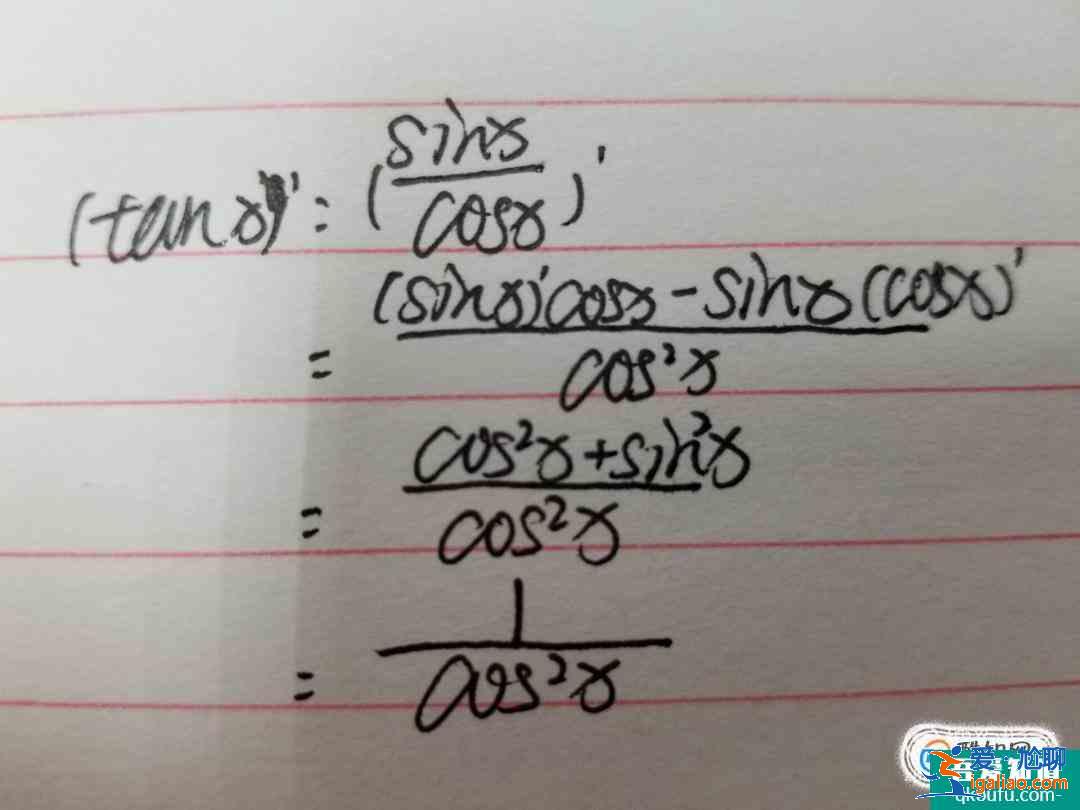 (tanx)' = (sinx/cosx)'
= ((sinx)'cosx - sinx(cosx)')/cos²x
= (cos²x + sin²x)/cos²x
= 1/cos²x
爱尬聊
igaliao.com
qkoufu.com